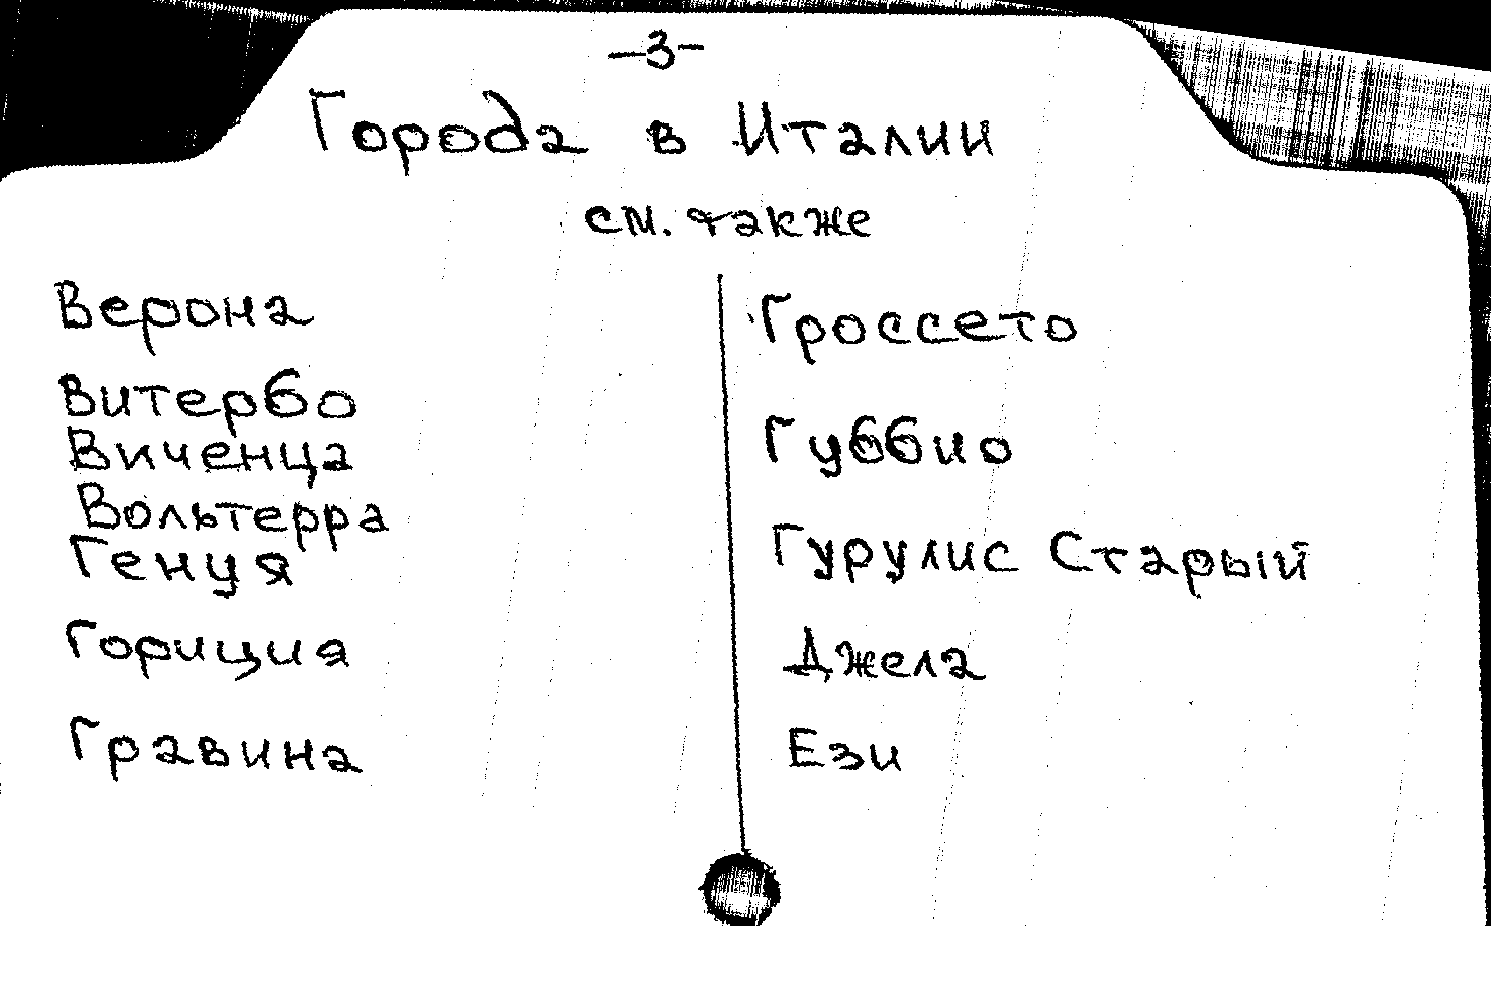 -3-
Города в Италии
см. также
Верона
Витербо
Виченца
Вольтерра
Генуя
Гориция
Гравина
Гроссето
Губбио
Гурулис Старый
Джела
Ези